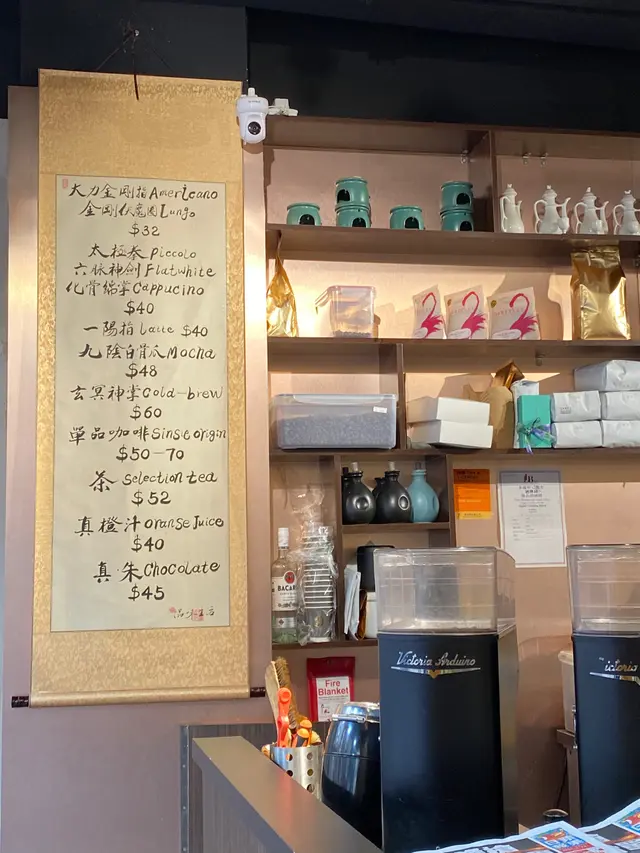 大力金剛指Americano
金剛伏魔圈Lungo
$32
太極拳 Piccolo
六脉神劍Flatwhite
化骨綿掌Cappucino
$40
一陽指Latte $40
九陰白骨爪Mocha
$48
玄冥神掌Cold-brew
$60
單品咖啡Single origin
$50-70
茶 selection tea
$52
真橙汁orange Juice
$40
真·朱Chocolate
$45
BACARDI
Fire
Blanket
Victoria Arduino